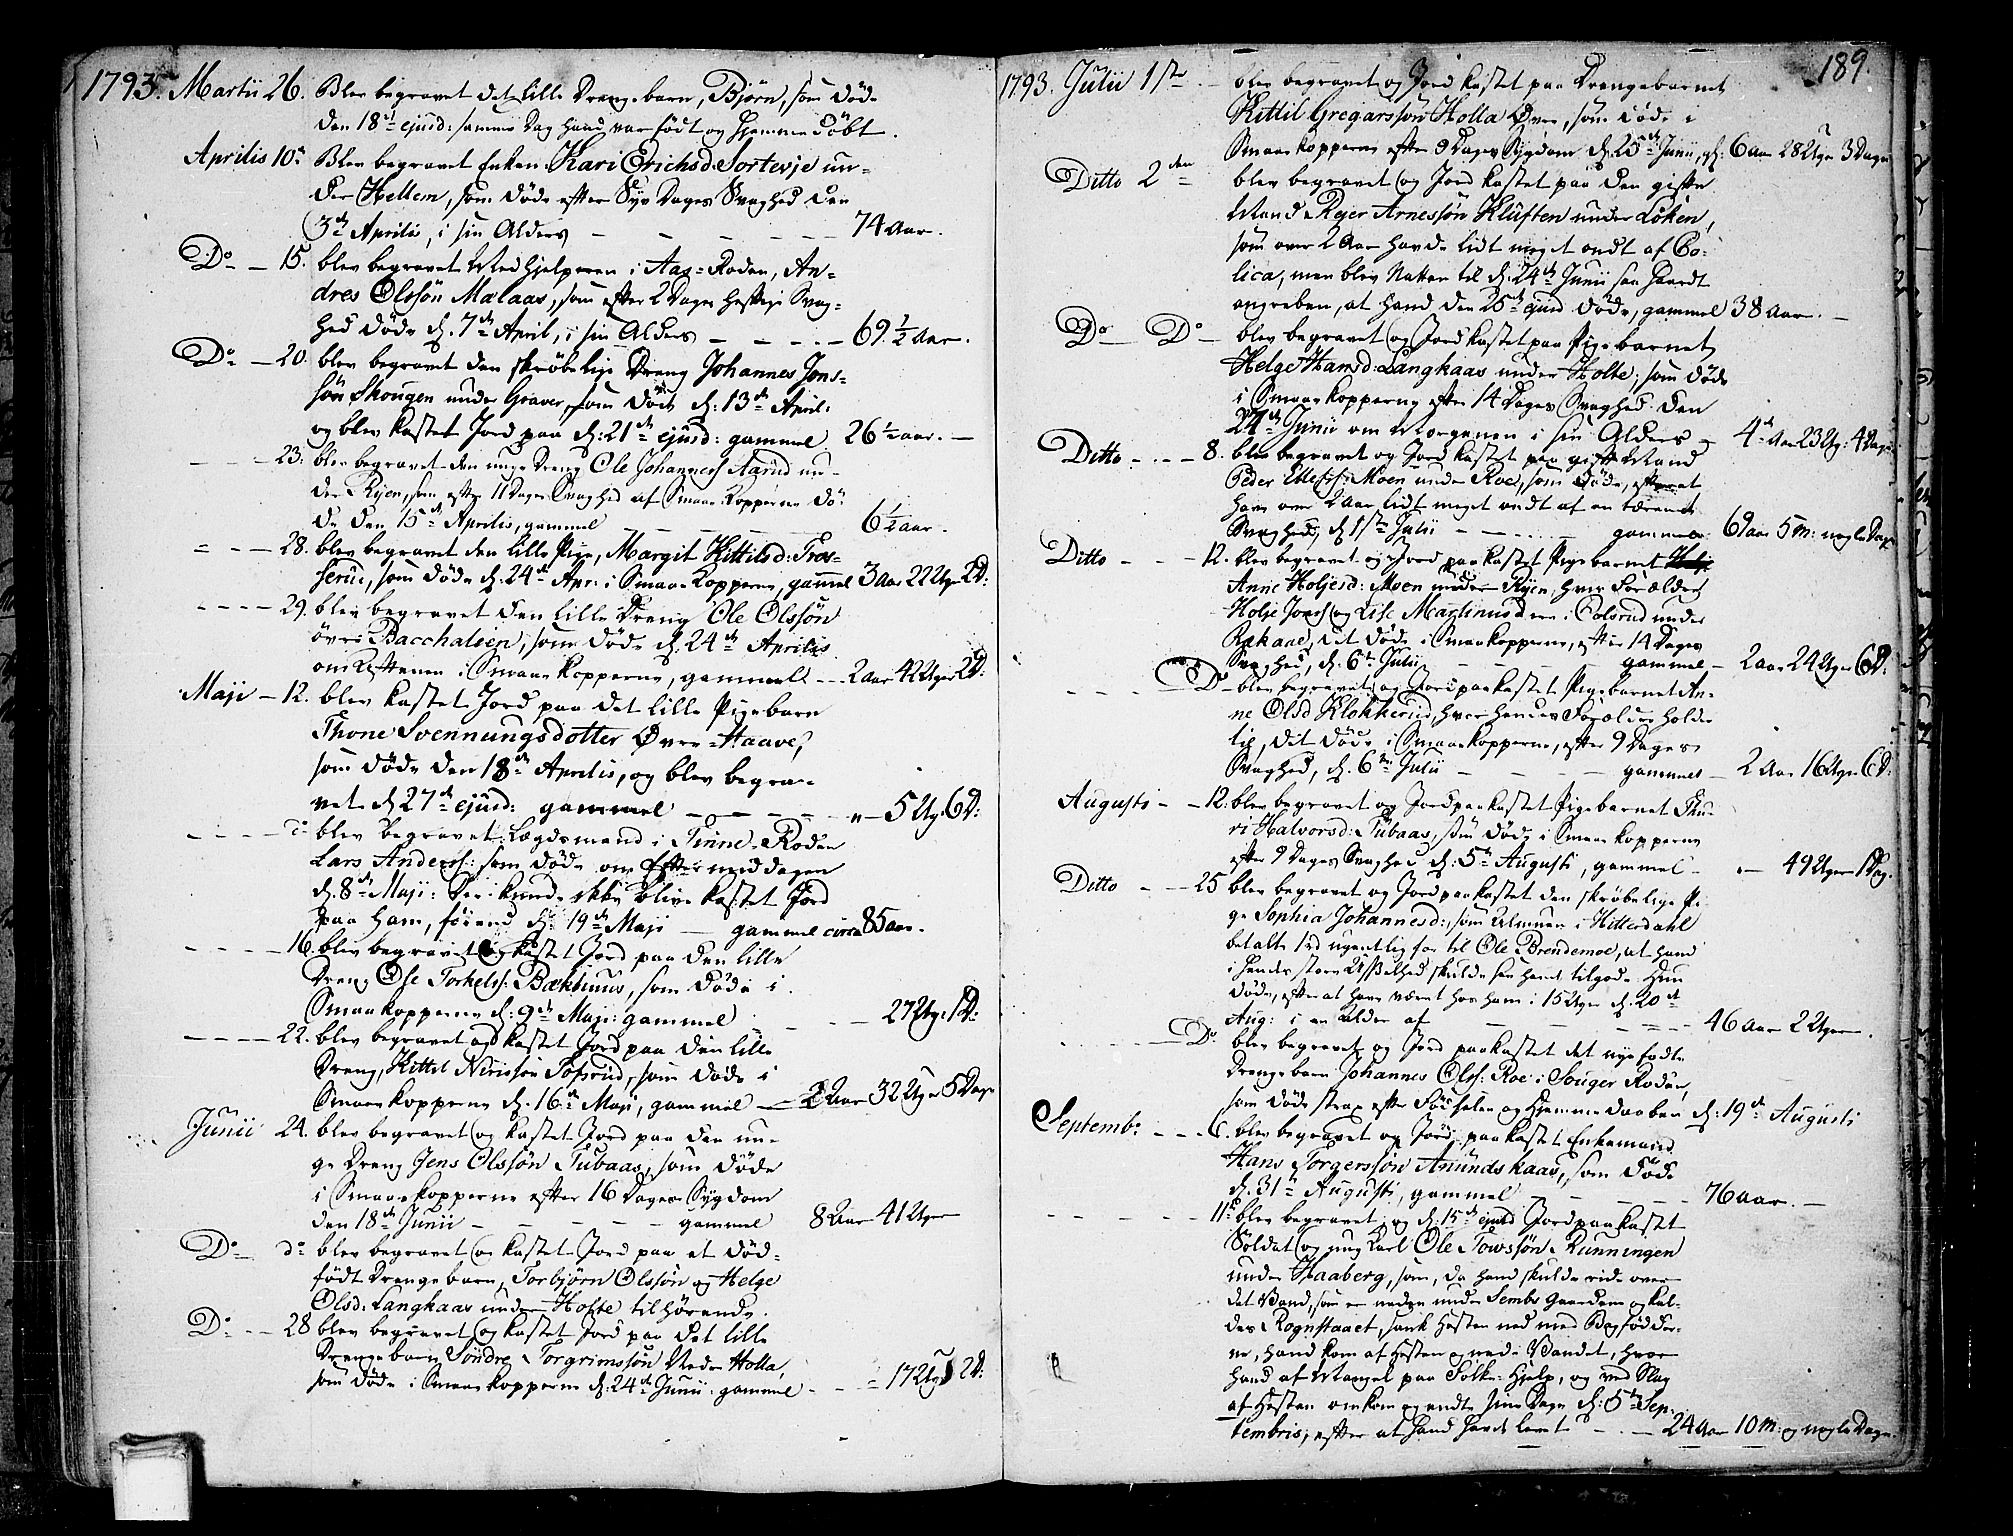 1793. Martii 26. Blev begravet det lille Drengebarn, Bjørn, som døde
den 18de ejusd: samme Dag hand var født og hjemmedøbt.
Aprilis 10de Blev begravet Enken Kari Erichsd. Sortevje un-
der Hellem, som døde efter Syv Dages Svaghed den
3de Aprilis, i sin Alders — — — — 74 Aar.
Do — 15. blev begravet Medhjelperen i Aas-Roden, An-
dres Olssøn Mælaas, som efter 2 Dages heftige Svag-
hed døde d. 7de April, i sin Alders — — — 69 1/2 Aar.
Do — 20. blev begravet den skrøbelige Dreng Johannes Jons-
søn Skougen under Graver, som døde d: 13de April:
og blev kastet Jord paa d: 21de ejusd: gammel 26 1/2 aar. —
— — — 23. blev begravet den unge Dreng Ole Johanness. Aarud un-
der Rijen, som efter 11 Dages Svaghed af Smaae Kopperne dø-
de den 15de Aprilis, gammel — — — 6 1/2 aar.
— — — 28. blev begravet den lille Pige, Margit Kittilsd: Fros-
serud, som døde d. 24de Apr: i Smaae Kopperne, gammel 3 Aar 22 Uger 2 D:
— — — 29. blev begravet den lille Dreng Ole Olssøn
øvre Bacchalien, som døde d. 24de Aprilis
om Aftenen i Smaae kopperne, gammel — 2 aar 42 Uger 2 D:
Maji — 12. blev kastet Jord paa det lille Pigebarn
Thone Svennungsdotter Øvre-Haave,
som døde den 18de Aprilis, og blev begra-
vet d. 27de ejusd: gammel — — — " — 5 Ug: 6 D:
— — — do blev begravet Lægdsmand i Tinne-Roden
Lars Anderss: som døde om Eftermiddagen
d. 8de Maji: der kunde ikke blive kastet Jord
paa ham, førend d. 19de Maji — gammel circa 85 aar.
— — — 16. blev begravet og kastet Jord paa den lille
Dreng Ole Torkelss: Bækhuus, som døde i
Smaae kopperne d: 9de Maji: gammel — — 27 Ug: 1 D:
— — — 22. blev begravet og kastet Jord paa den lille
Dreng, Kittel Nirissøn Tofsrud, som døde i
Smaae kopperne d. 16de Maji, gammel — 2 Aar 32 Uger 5 Dage
Junii 24. blev begravet og kastet Jord paa den un-
ge Dreng Jens Olssøn Tubaas, som døde
i Smaae kopperne efter 16 Dages Sygdom
den 18de Junii — — — gammel 8 Aar 41 Uger
Do — do blev begravet og kastet Jord paa et død-
født Drengebarn, Torbjørn Olssøn og Helge
Olsd: Langkaas under Holte tilhørende.
Do — 28 blev begravet og kastet Jord paa det lille
Drengebarn Søndre Torgrimssøn Nedre Holla,
som døde i Smaae kopperne d: 24de Junii: gammel — — 17 Ug: 2 D:
189.
1793. Julii 1ste — blev begravet og Jord kastet paa Drengebarnet
Kittil Gregarssøn Holla Øvre, som døde i
Smaae kopperne efter 9 Dages Sygdom d. 25de Junii, gl: 6 aar 28 Uger 3 Dage
Ditto 2den blev begravet og Jord kastet paa den gifte
Mand Rejer Arnessøn Klüften under Løken,
som over 2 Aar havde lidt meget ondt af Co-
lica, men blev Natten til d. 24de Junii saa haardt
angreben, at hand den 25de ejusd døde, gammel 38 aar. —
Do — Do — blev begravet og Jord kastet paa Pigebarnet
Helge Hansd: Langkaas under Holte, som døde
i Smaae kopperne efter 14 Dages Svaghed den
24de Junii om Morgenen i sin Alders 4de Aar 23 Ug: 4 Dage
Ditto — — 8. blev begravet og Jord kastet paa gifte Mand
Peder Ellefss: Moen under Roe, som døde, efter at
have over 2 Aar lidt meget ondt af en tærende
Svaghed, d. 1ste Julii — — — gammel 69 aar 5 m: nogle Dage
Ditto — — 12. blev begravet og Jord paa kastet Pigebarnet
Anne Holjesd: Moen under Rijen, hvis Forældre
Holje Jonss og Lise Martinusd ere i Colsrud under
Rækane, det døde i Smaae kopperne, efter 14 Dages
Svaghed, d. 6te Julii — — — gammel — 2 aar 24 Uger 6 D:
— — — Do — blev begravet og Jord paa kastet Pigebarnet An-
ne Olsd Klokkerud, hvor hendes Forældre holde
til, det døde i Smaae kopperne, efter 9 Dages
Svaghed, d. 6te Julii — — — gammel — 2 Aar 16 Uger 6 D:
Augusti — — 12. blev begravet og Jord paa kastet Pigebarnet Thu-
ri Halvorsd: Tubaas, som døde i Smaae kopperne
efter 9 Dages Svaghed d: 5te Augusti, gammel — " — 49 Uger 1 Dag.
Ditto — — 25 blev begravet og Jord paa kastet den skrøbelige Pi-
ge Sophia Johannesd:, som Almuen i Hitterdahl
betalte 1 rd ugentlig for til Ole Brendemoe, at hand
i hendes store Usselhed skulde see hende tilgode. Hun
døde, efter at have været hos ham i 15 Uger d. 20de
Aug: i en Alder af — — — 46 aar 2 Uger.
— — — Do. blev begravet og Jord paa kastet det nye fødte
Drengebarn Johannes Olss: Roe i Souger Roden,
som døde strax efter Fødselen og Hjemme daaben d: 19de Augusti
Septembr — — 6. blev begravet og Jord paa kastet Enkemand
Hans Torgerssøn Anundskaas, som døde
d. 31te Augusti, gammel — — — 76 aar. —
— — — 11te blev begravet, og d. 15de ejusd Jord paa kastet
Soldat og ung Karl Ole Towssøn Runningen
under Haaberg, som, da hand skulde ride over
det Vand, som er neden under Sembs Gaardene og kal-
des Rognstaaet, sank Hesten ned med Bagfødder-
ne, hand kom af Hesten og ned i Vandet, hvor
hand af Mangel paa Folke-Hjelp, og ved Slag
af Hesten omkom og endte sine Dage d: 5te Sep-
tembris, efter at hand havde levet — — 24 Aar 10 m: og nogle Dage.